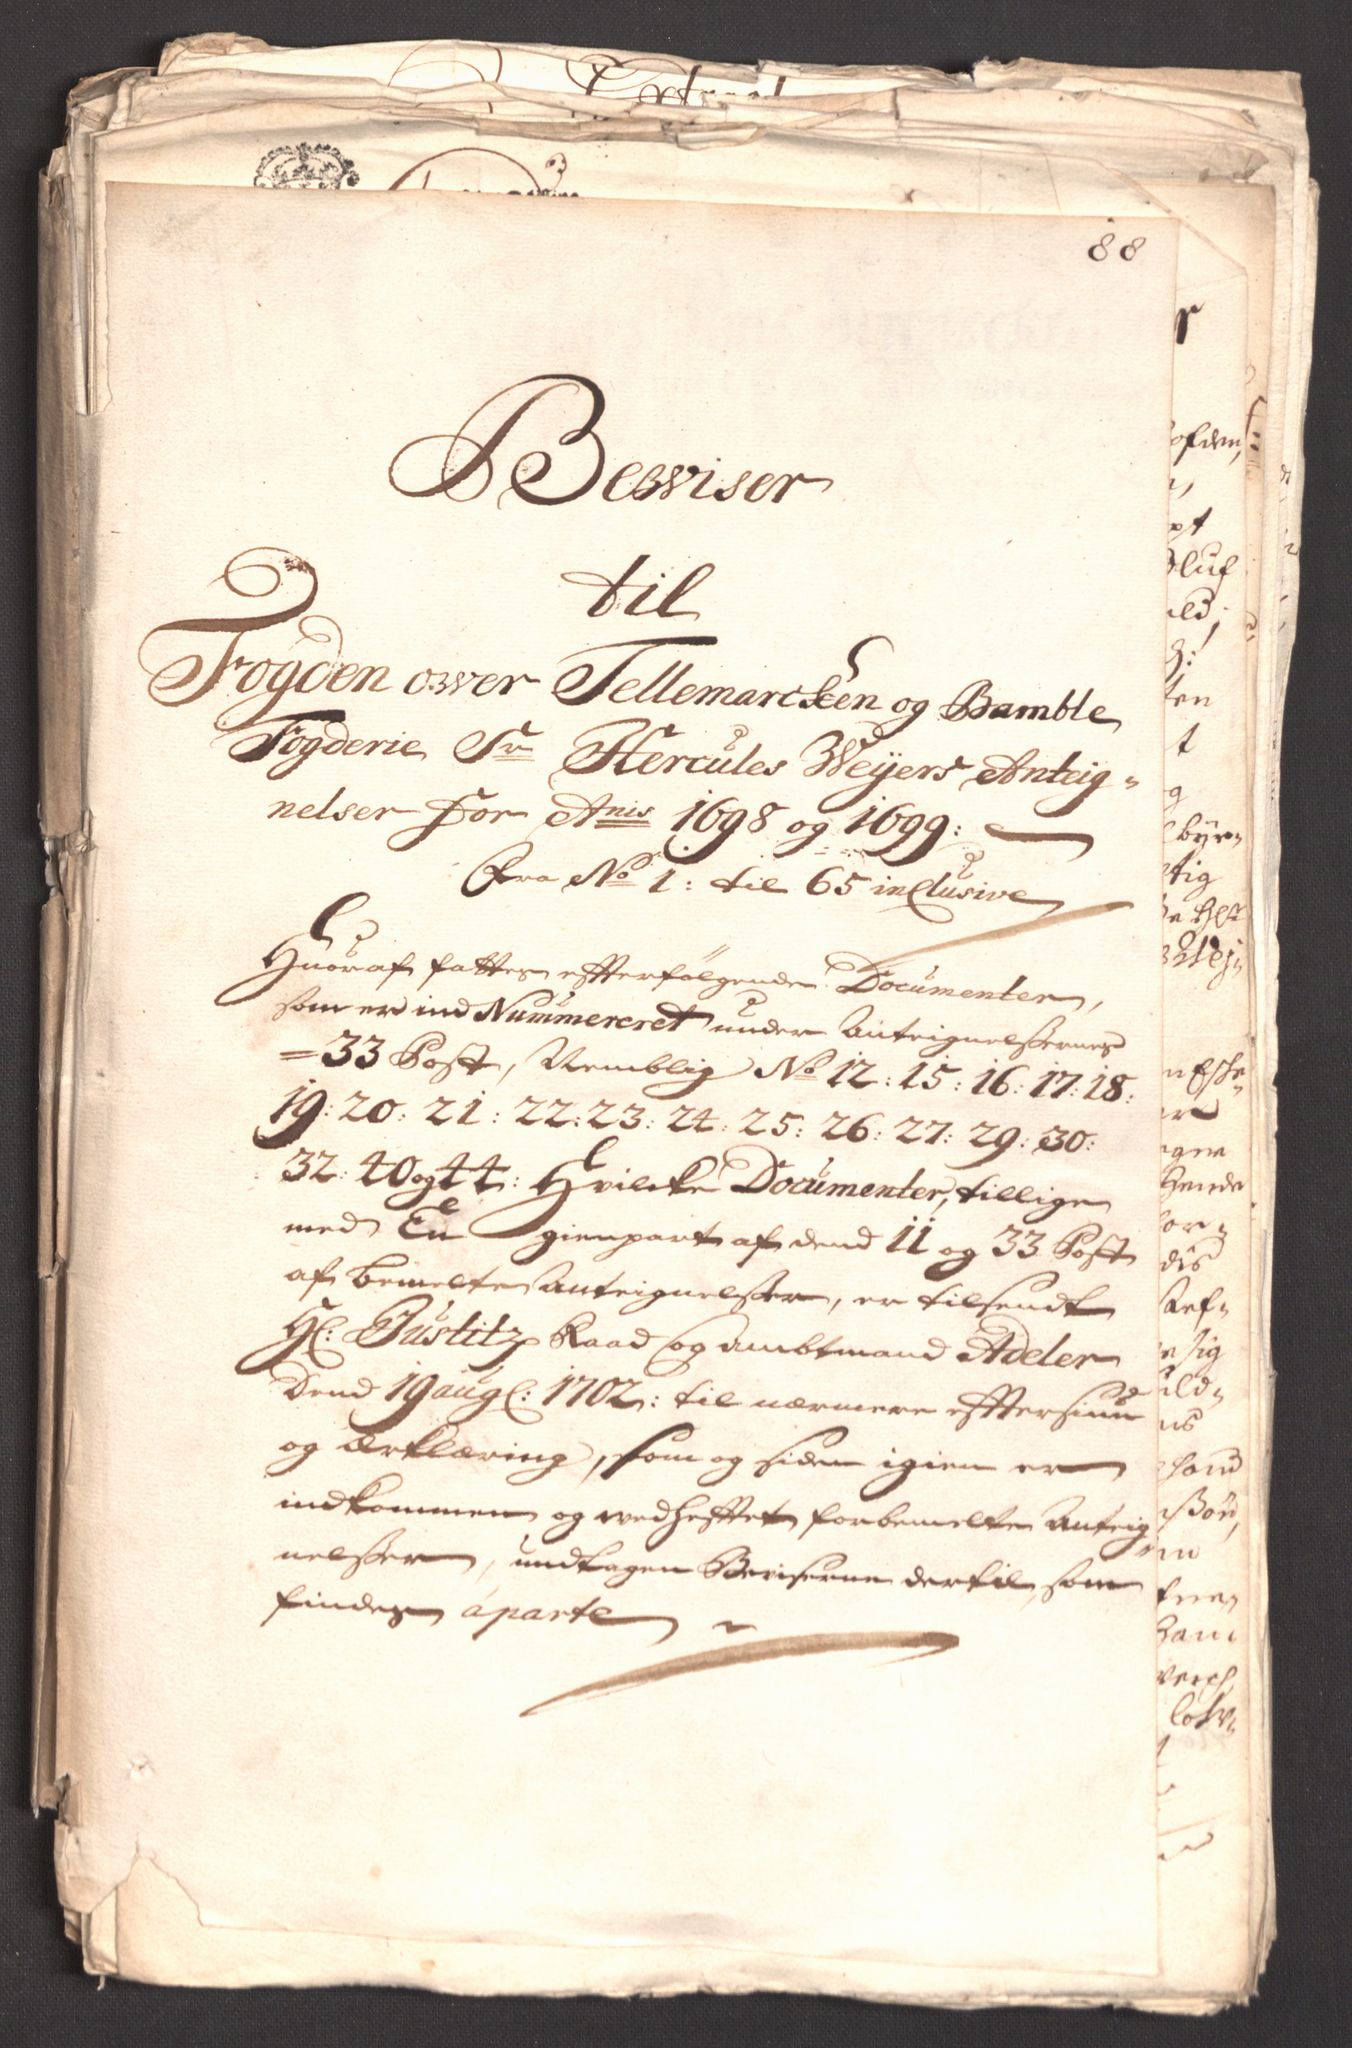 88
Bewiser
til
Fogden over Tellemarcken og Bamble
Fogderie Sr Hercules Weÿers Anteig-
nelser for Anis 1698 og 1699:
Fra No 1: til 65 inclusive
Huoraf fattes efterfølgende Documenter,
som er ind Nummereret under Anteignelsernes
=33 Post, Nemblig No 12: 15: 16: 17: 18:
19: 20: 21: 22: 23: 24: 25: 26: 27: 29: 30:
32: 40 og 44: Hvilcke Documenter, tillige
med En gienpart af dend 11 og 33 Post
af bemelte Anteignelser, er tilsendt
Hl: Justitz Raad og Ambtmand Adeler
Dend 19 augl: 1702: til nærmere eftersiun
og Erklæring, som og siden igien er
indkommen og vedheftet forbemelte Anteig
nelser, undtagen Beviserne dertil, som
findes àparte